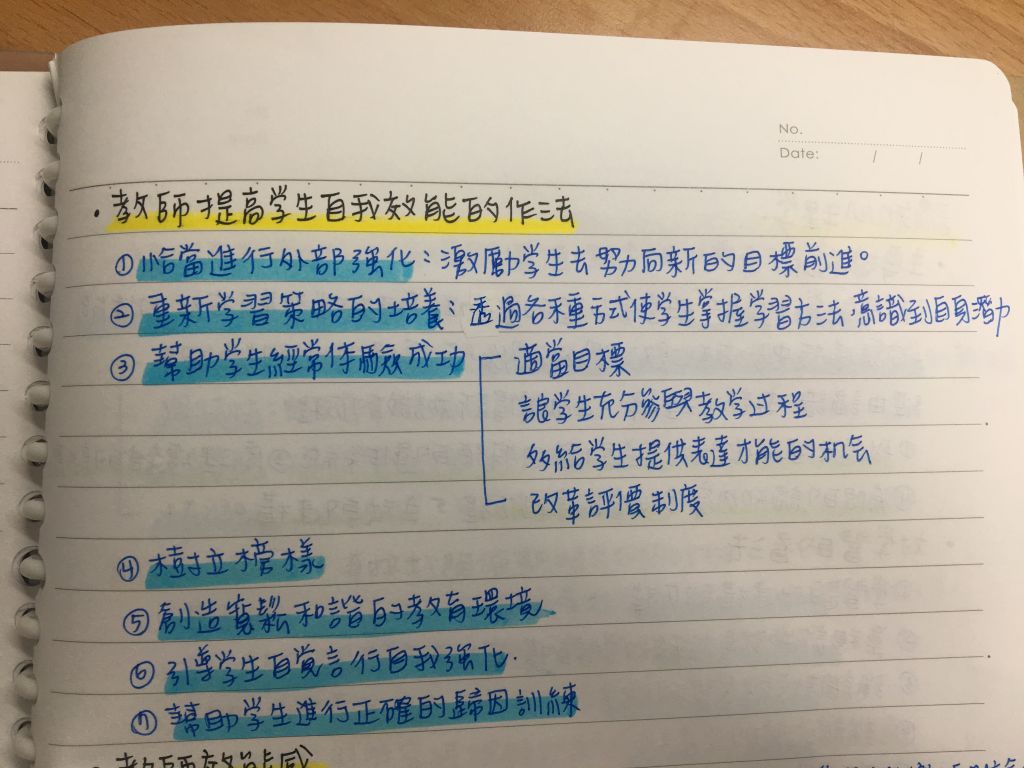 No.
Date: / /
・教師提高学生自我效能的作法
① 恰當進行外部強化：激勵学生去努力向新的目標前進。
② 重新学習策略的培養：透過各種方式使学生掌握学習方法，意識到自身潛力
③ 幫助学生經常体驗成功 適當目標
讓学生充分參與教学过程
多給学生提供表達才能的机会
改革評價制度
④ 樹立榜樣
⑤ 創造寬鬆和諧的教育環境
⑥ 引導学生自覚言行自我強化.
⑦ 幫助学生進行正確的歸因訓練
・教師效能感